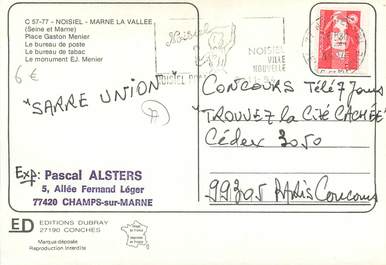 C 57-77 - NOISIEL - MARNE LA VALLEE
(Seine et Marne)
Place Gaston Menier
Le bureau de poste
Le bureau de tabac
Le monument EJ. Menier
6 €
Noisiel
NOISIEL
VILLE
NOUVELLE
"SARRE UNION"
CONCOURS Télé 7 Jours
"TROUVEZ la Cité CACHÉE"
Cédex 3050
99305 PARIS Concours
Exp: Pascal ALSTERS
5, Allée Fernand Léger
77420 CHAMPS-sur-MARNE
ED EDITIONS DUBRAY
27190 CONCHES
Marque déposée
Reproduction Interdite